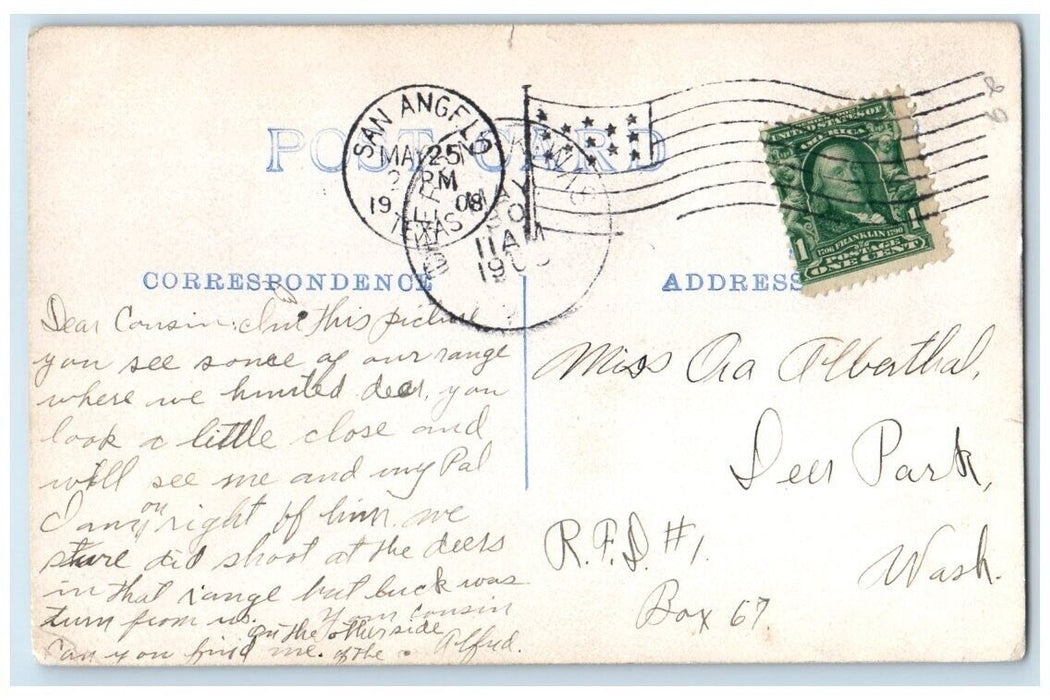 POST CARD
SAN ANGELO
MAY 25
2 PM
1908
TEXAS
11 AM
19
UNITED STATES OF
AMERICA
1706 FRANKLIN 1790
POSTAGE
1 ONE CENT 1
CORRESPONDENCE
ADDRESS
Dear Cousin: In this picture
you see some of our range
where we hunted deer. you
look a little close and
will see me and my Pal
I am on right of him. we
sture did shoot at the deers
in that range but luck was
turn from us. Your cousin
Can you find me. on the otherside of the Alfred.
Miss Ora Alberthal,
Deer Park,
Wash.
R.F.D. #1.
Box 67